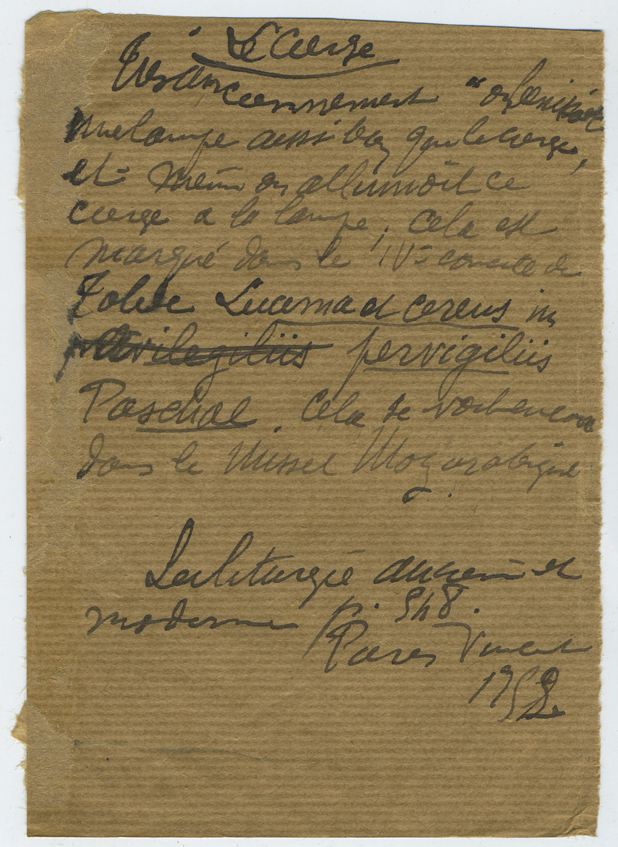 Le Cierge
Très anciennement "on bénissoit
une lampe aussi bien que le cierge,
et même on allumoit ce
cierge a la lampe, cela est
marqué dans le IVe concile de
Tolede Lucerna et cereus in
privilegiis pervigiliis
Paschae. Cela se voit encore
dans le Missel Mozarabique
La liturgie ancienne et
moderne p. 548.
Paris Vincent
1752